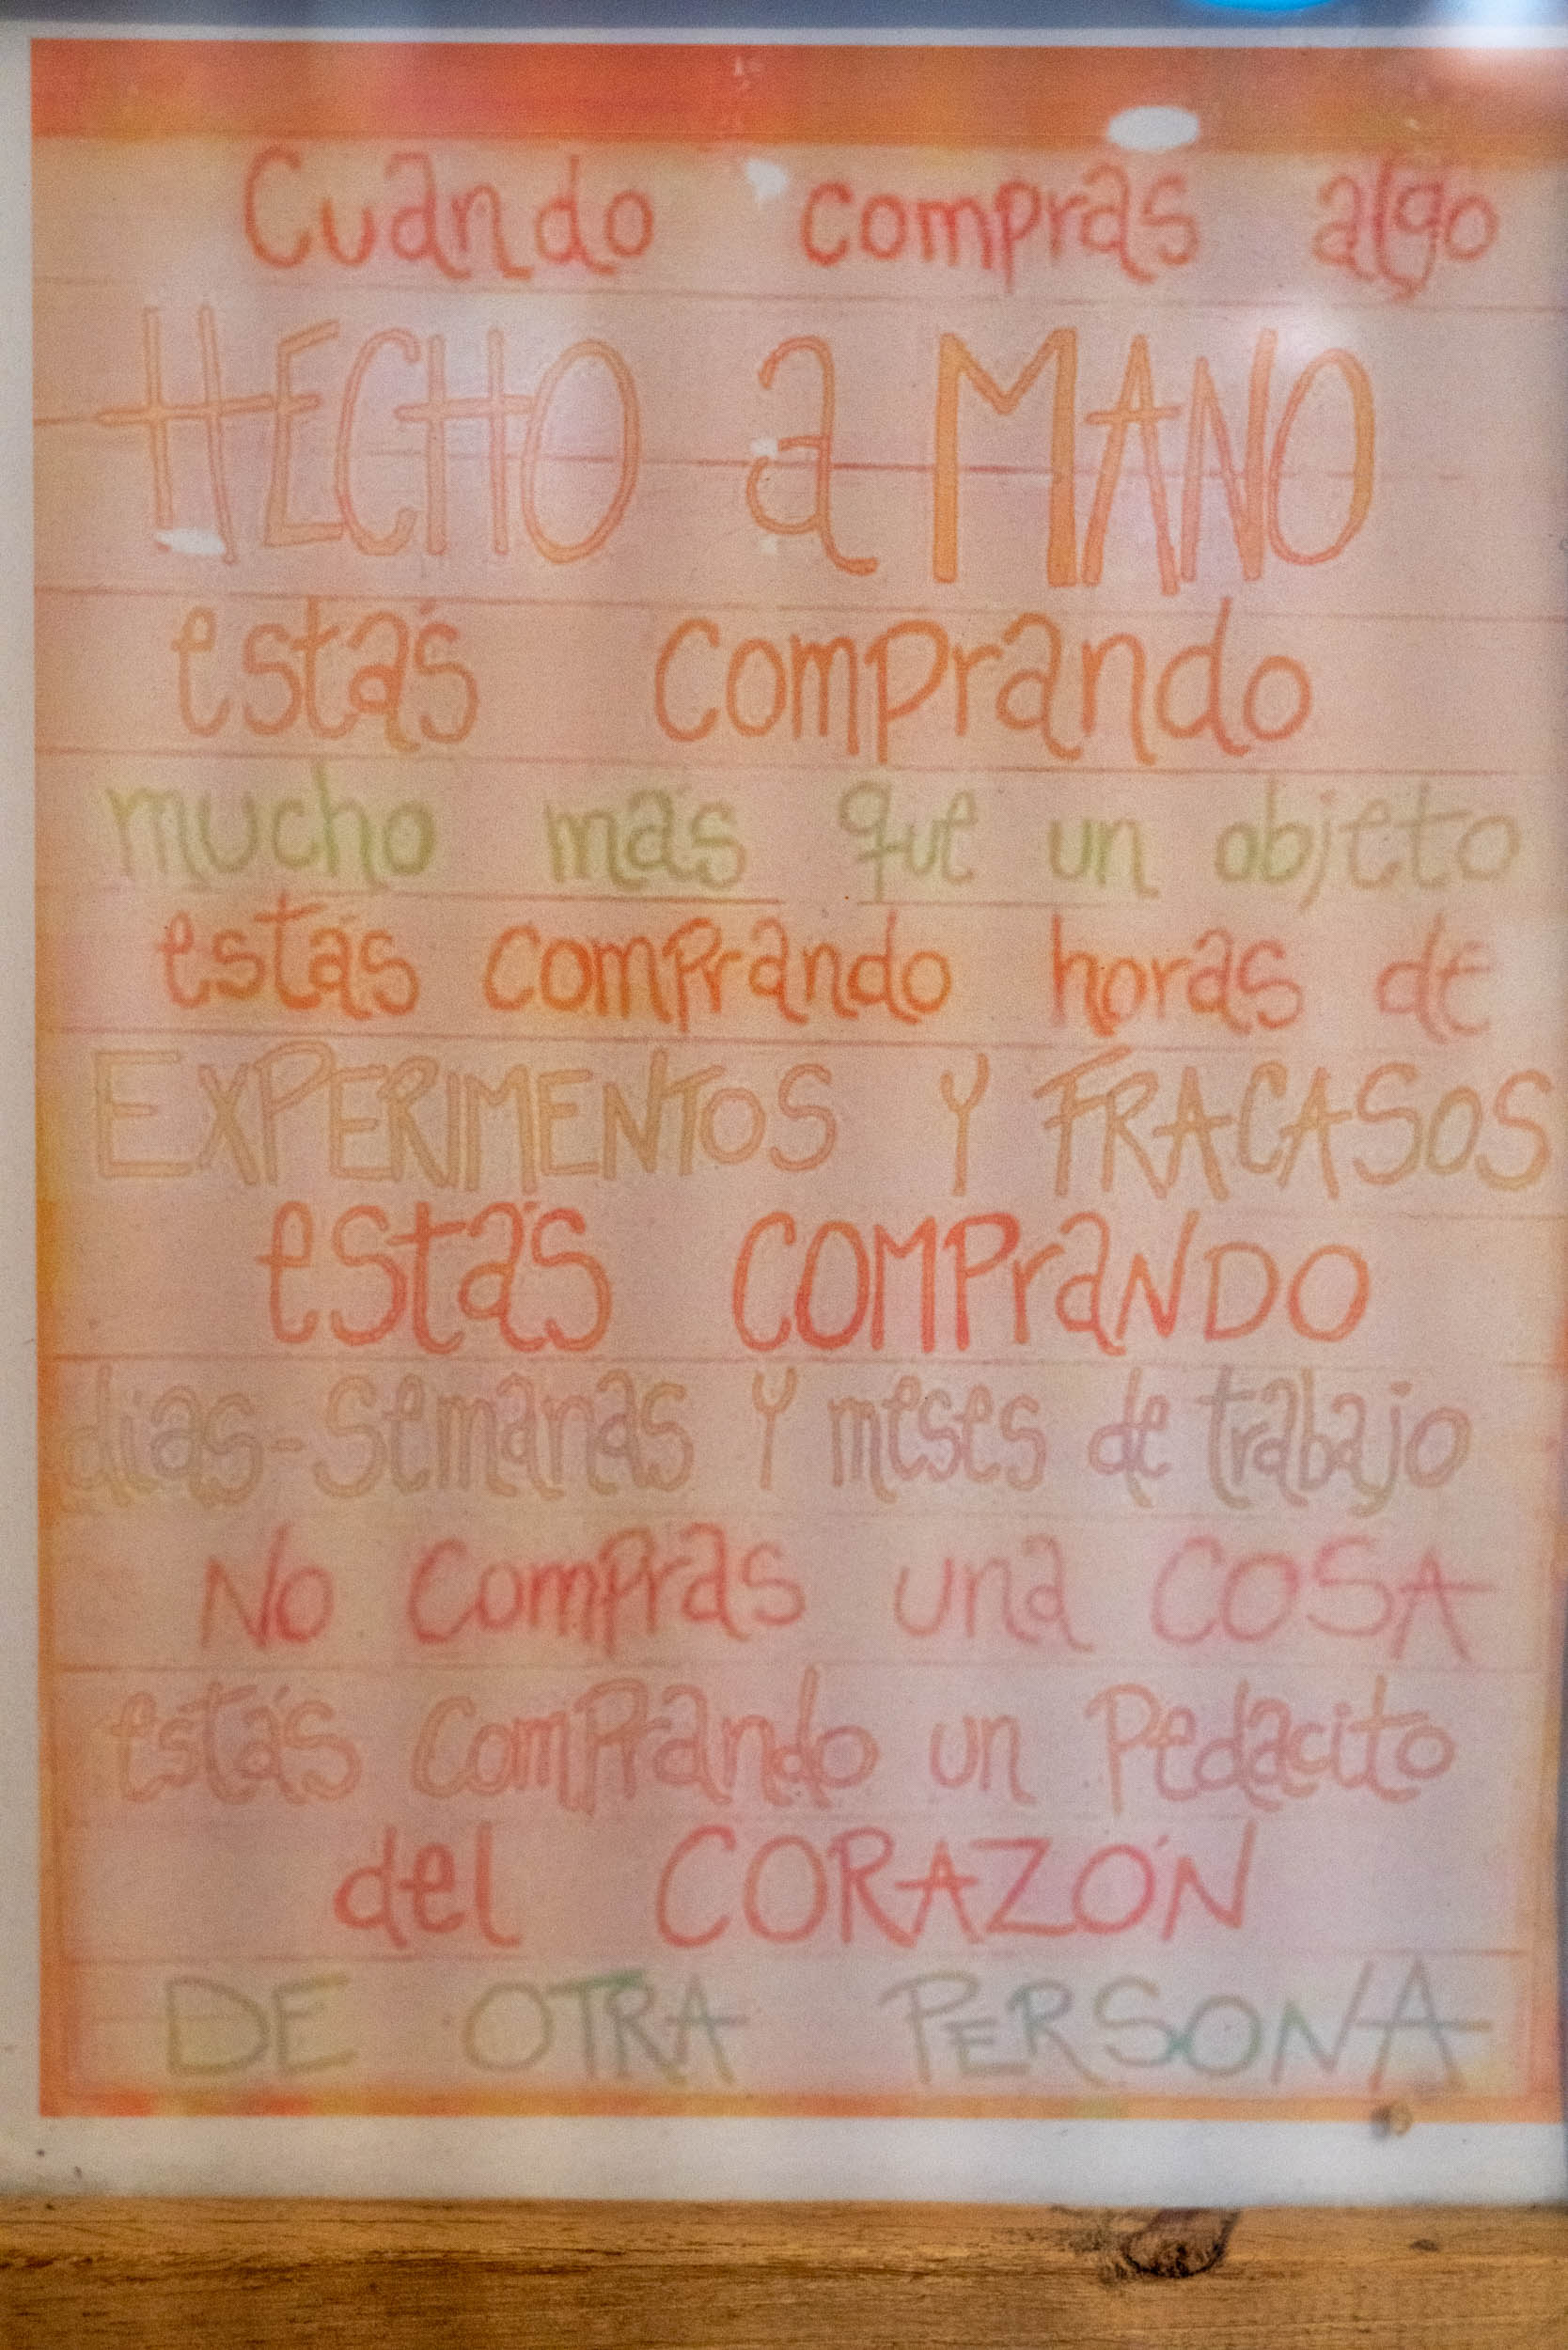 Cuando compras algo
HECHO a MANO
estás comprando
mucho más que un objeto
estás comprando horas de
EXPERIMENTOS Y FRACASOS
estás COMPraNDO
dias-semanas Y meses de trabajo
No compras una COSA
estás comprando un Pedacito
del CORAZÓN
DE OTRA PERSONA